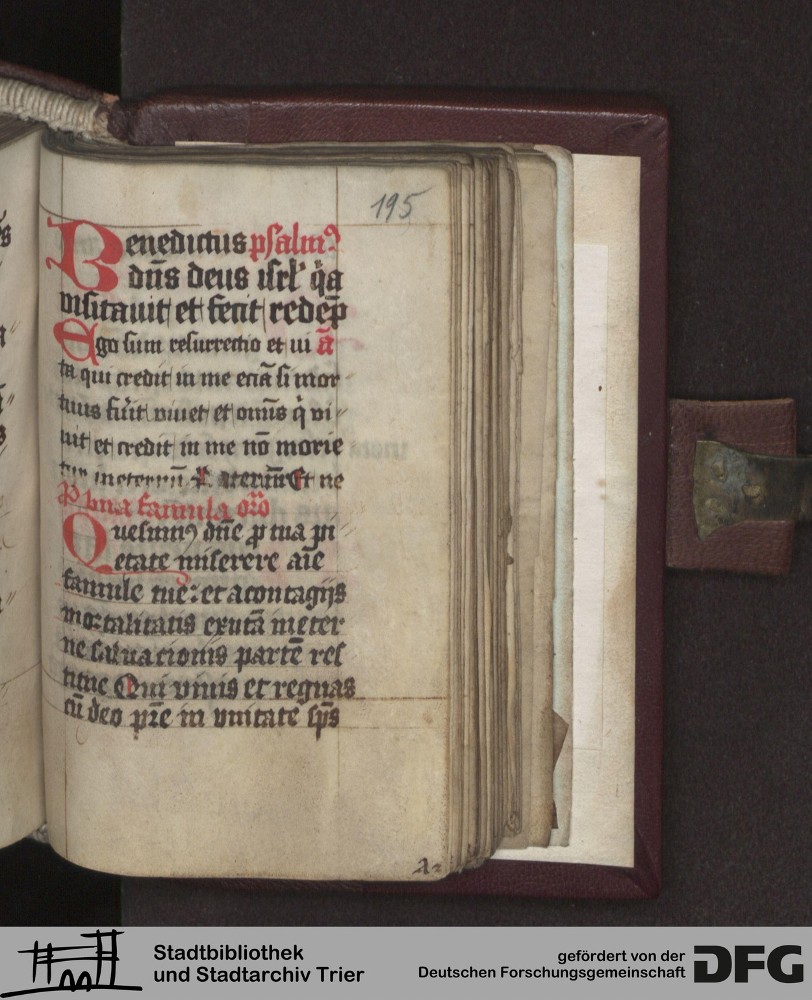 195
Benedictus psalmꝰ
dn̄s deus isrl' q̄a
visitauit et fecit redēp
Ego sum resurrectio et ui ā
ta qui credit in me eciā si mor
tuus fu̕it viuet et omīs q̇ vi
uit et credit in me nō morie
tur ineternū Et ne
P vna famula or̄o
Quesumꝰ dn̄e ꝓ tua pi
etate miserere aīe
famule tue: et acontagijs
mortalitatis exutā ineter
ne saluacionis partē res
titue Qui viuis et regnas
cū deo pr̄e in vnitate sp̄s
Stadtbibliothek
und Stadtarchiv Trier
gefördert von der
Deutschen Forschungsgemeinschaft
DFG